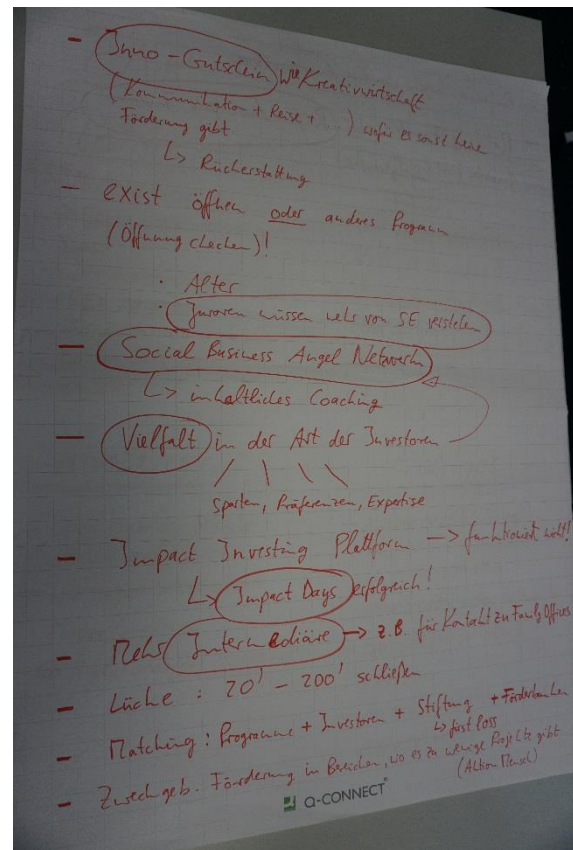 - Inno-Gutschein wie Kreativwirtschaft
(Kommunikation + Reise + ...) wofür es sonst keine
Förderung gibt
↳ Rückerstattung
- exist öffnen oder anderes Programm
(Öffnung checken)!
· Alter
· Juroren müssen mehr von SE verstehen
- Social Business Angel Netzwerk
↳ inhaltliches Coaching
- Vielfalt in der Art der Investoren
Sparten, Präferenzen, Expertise
- Impact Investing Plattform -> funktioniert nicht!
↳ Impact Days erfolgreich!
- Mehr Intermediäre -> z.B. für Kontakt zu Family Offices
- Lücke: 20' - 200' schließen
- Matching: Programme + Investoren + Stiftung + Förderbanken
↳ first loss
- Zweckgeb. Förderung in Bereichen, wo es zu wenige Projekte gibt
(Aktion Mensch)
Q-CONNECT®